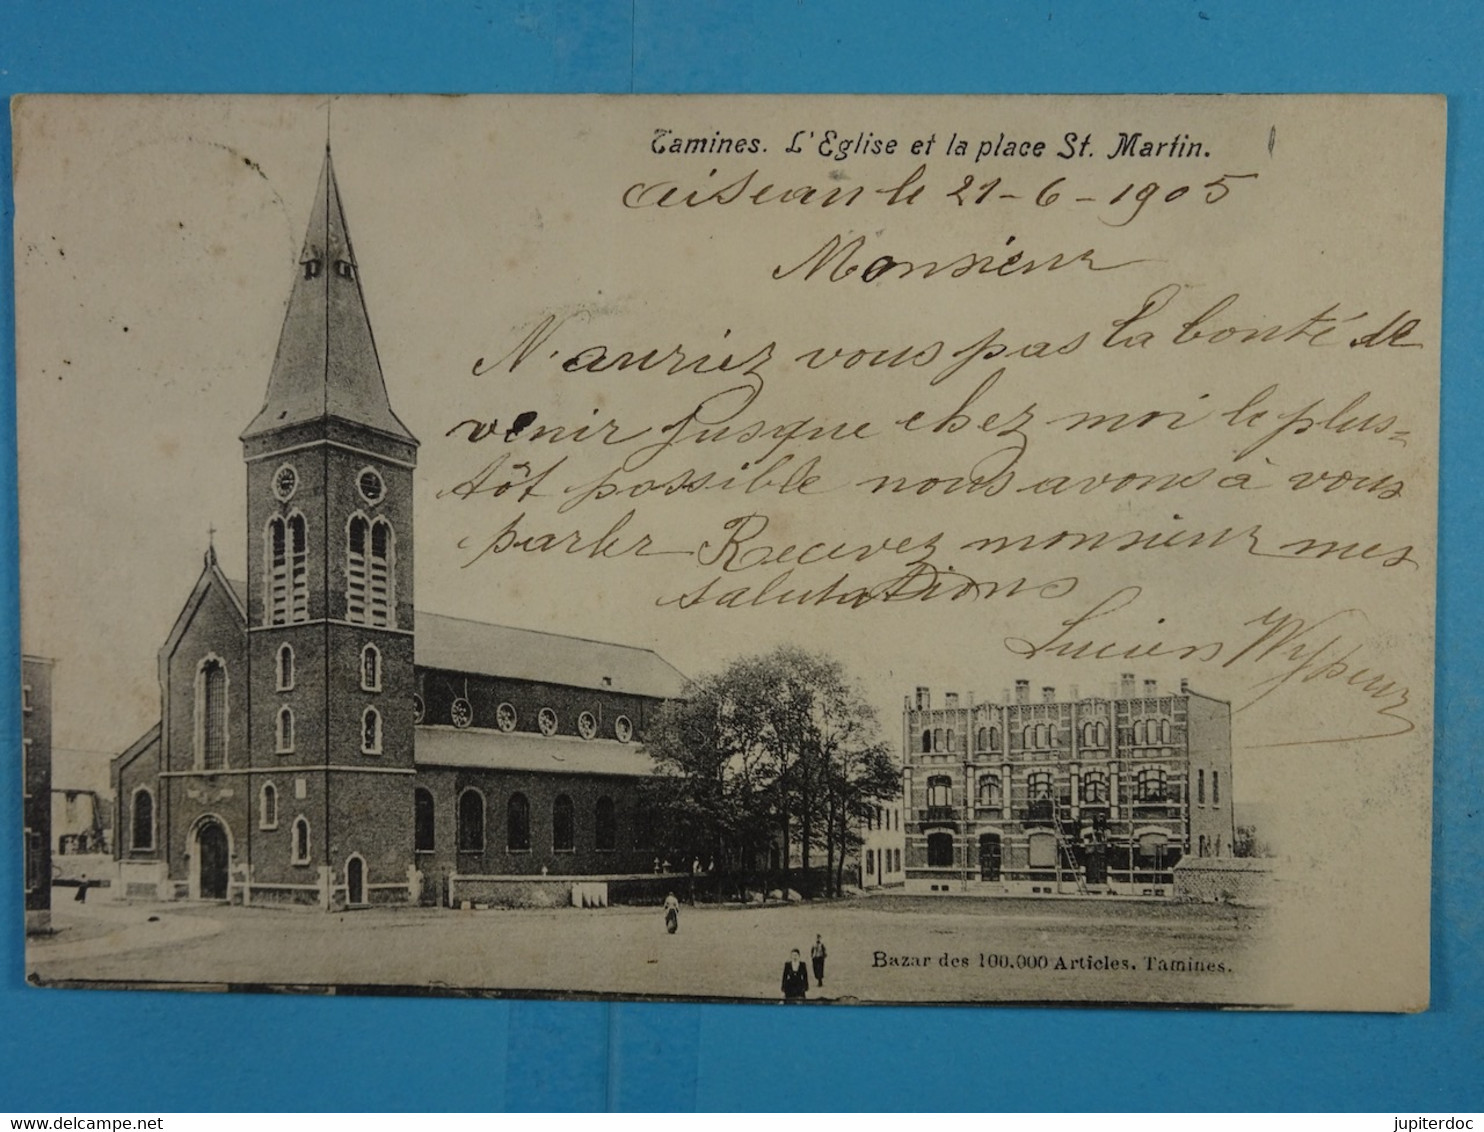 Tamines. L'Eglise et la place St. Martin.
Aiseau le 21-6-1905
Monsieur
N'auriez vous pas la bonté de
venir jusque chez moi le plus-
tôt possible nous avons à vous
parler Recevez monsieur mes
salutations
Lucien
Bazar des 100.000 Articles. Tamines.
www.delcampe.net
jupiterdoc